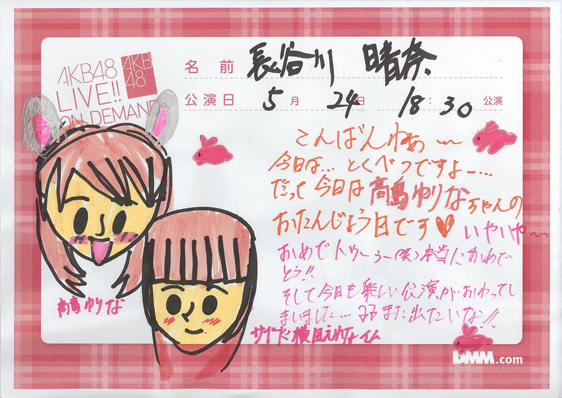 AKB48
LIVE!!
ON DEMAND
AKB
48
名前 長谷川 晴奈
公演日 5月 24日 18:30 公演
こんばんわぁ〜
今日は…とくべつですよー…
だって今日は高島ゆりなちゃんの
おたんじょう日です♥
いやいや〜
おめでトゥーぅー(笑)本当におめで
とう!!
そして今日も楽しい公演がおわってし
まいました…またまた出たいな!!
高島ゆりな
DMM.com